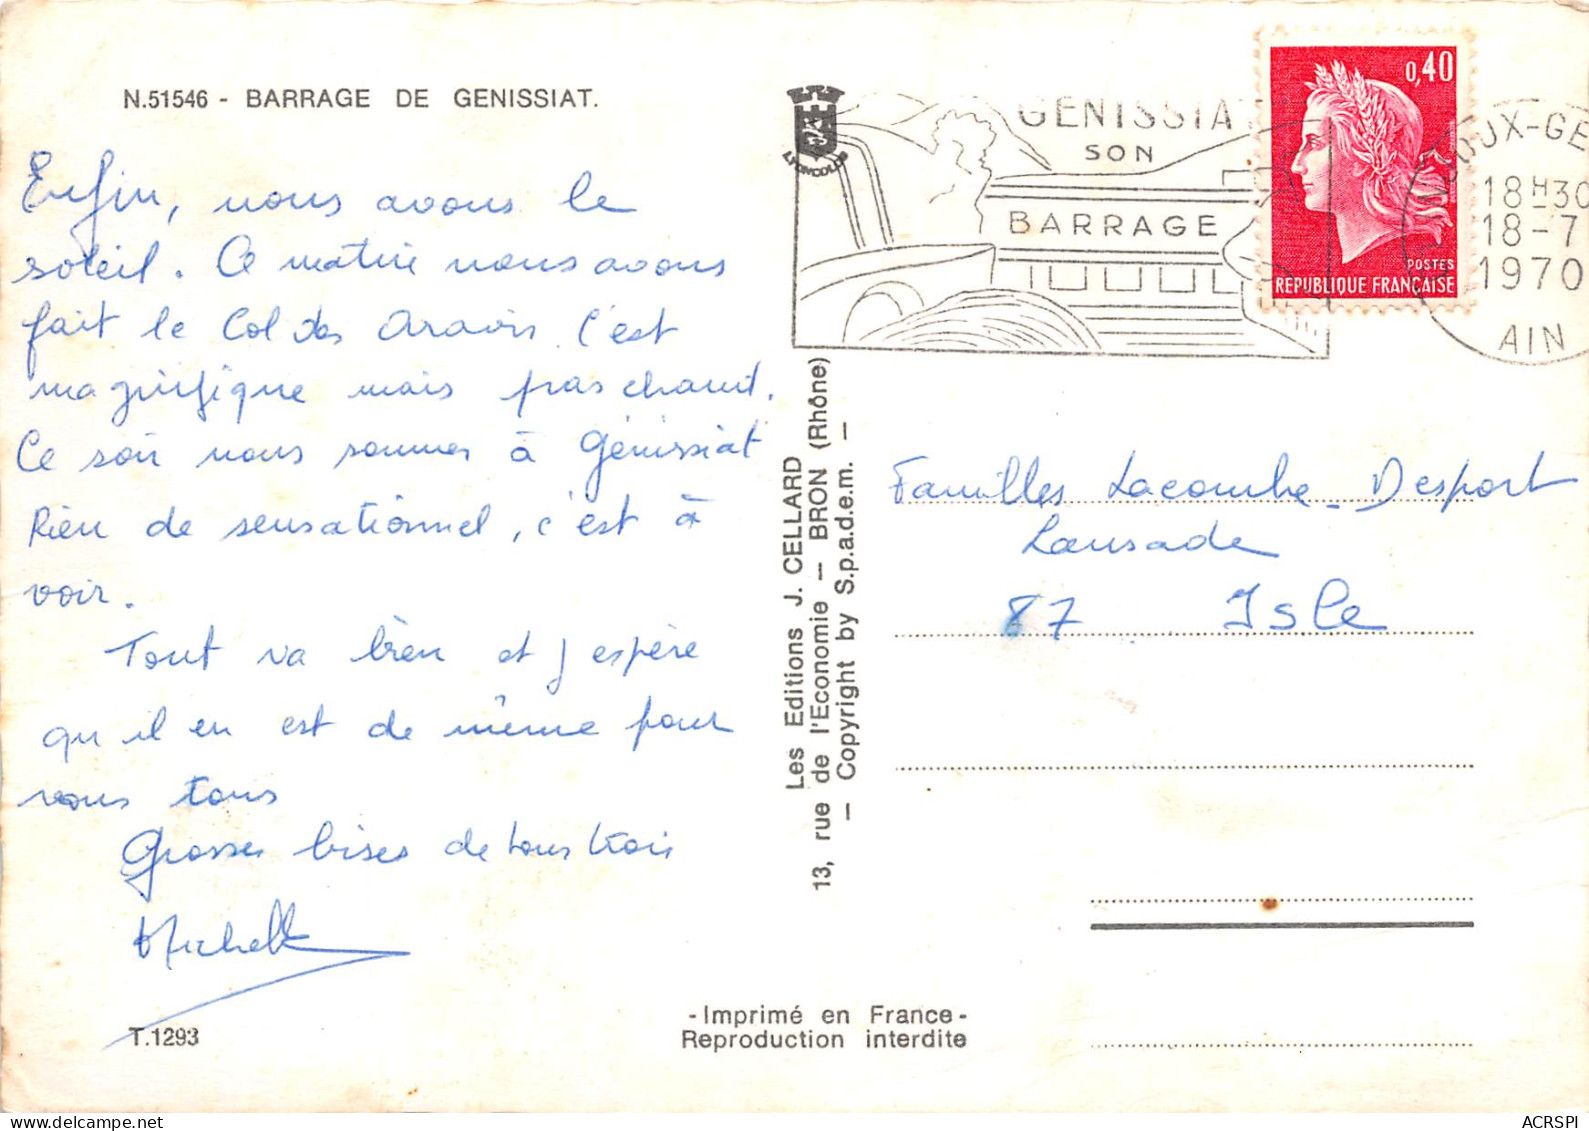 N.51546 - BARRAGE DE GENISSIAT.
Enfin, nous avons le
soleil. Ce matin nous avons
fait le Col des Aravis c'est
magnifique mais pas chaud.
Ce soir nous sommes à Génissiat
Rien de sensationnel, c'est à
voir.
Tout va bien et j espère
qu il en est de même pour
vous tous
Grosses bises de tous trois
Michell
T.1293
Les Editions J. CELLARD
13, rue de l'Economie - BRON (Rhône)
- Copyright by S.p.a.d.e.m. -
-Imprimé en France-
Reproduction interdite
LYONCOLOR
GENISSIA
SON
BARRAGE
0,40
POSTES
REPUBLIQUE FRANÇAISE
18H30
18-7
1970
AIN
Familles Lacombe - Desport
Lansade
87 Isle
ACRSPI